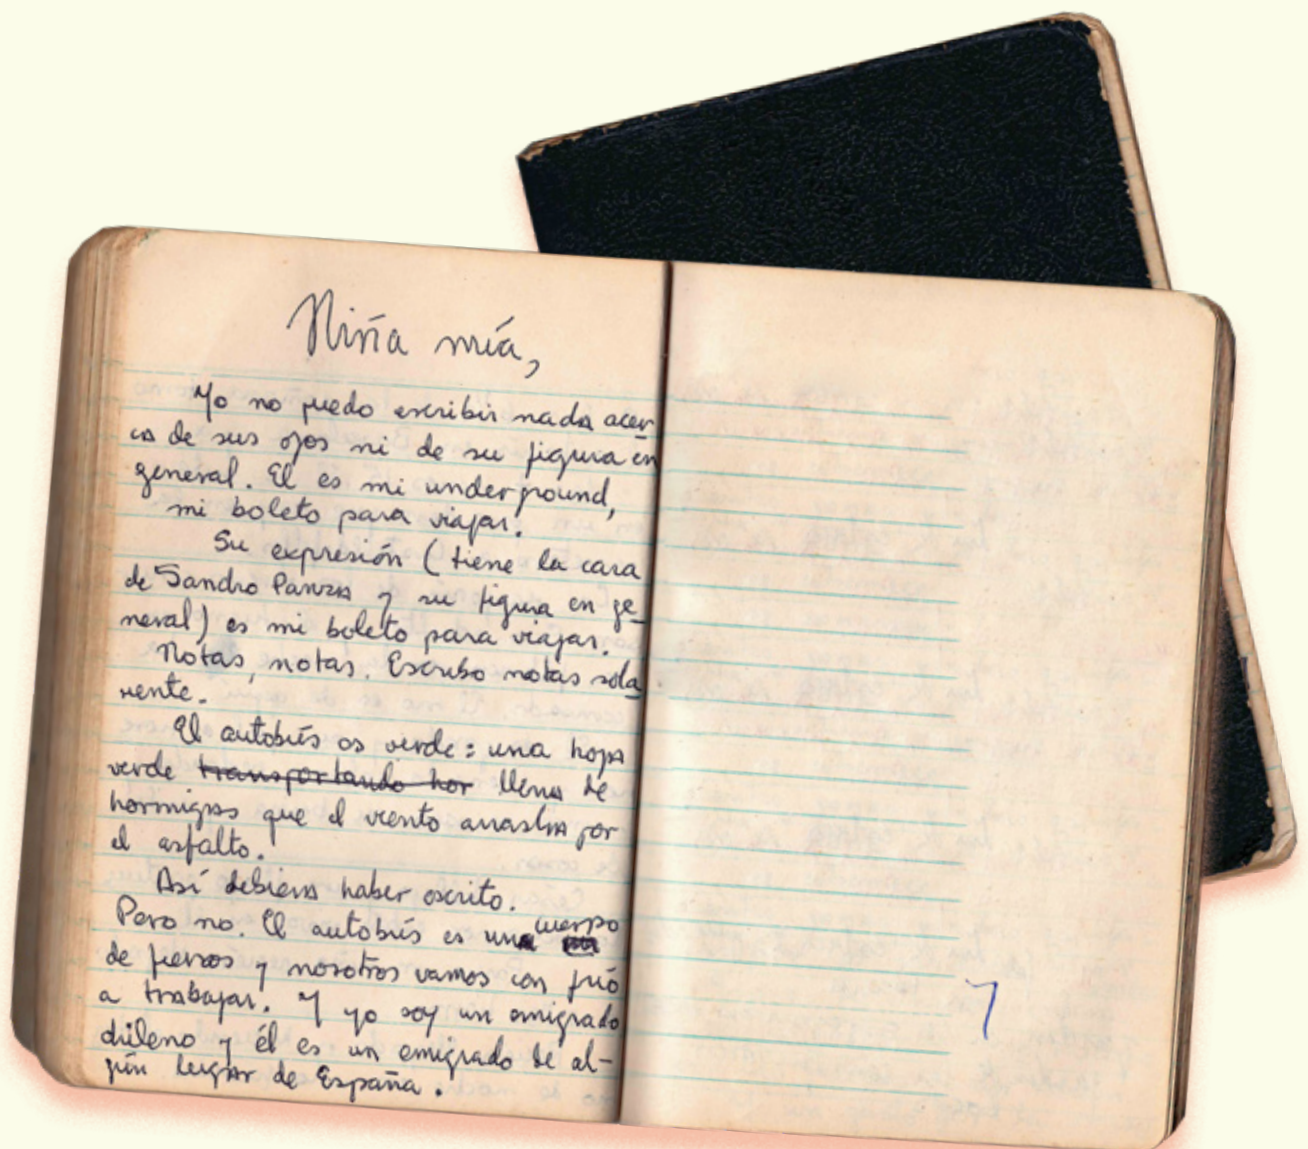 Niña mía,
Yo no puedo escribir nada acer
ca de sus ojos ni de su figura en
general. El es mi underground,
mi boleto para viajar.
Su expresión (tiene la cara
de Sandro Panza y su figura en ge
neral) es mi boleto para viajar.
Notas, notas. Escribo notas sola
mente.
El autobús es verde: una hoja
verde transportando hor llena de
hormigas que el viento arrastra por
el asfalto.
Así debiera haber escrito.
Pero no. El autobús es una cuerpo
de fierros y nosotros vamos con frío
a trabajar. Y yo soy un emigrado
chileno y él es un emigrado de al-
gún lugar de España.
7